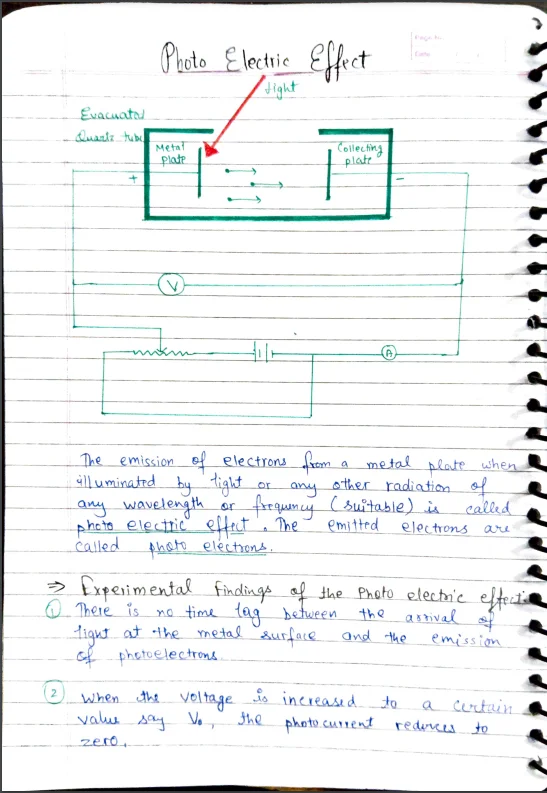 Photo Electric Effect
Page No.
Date
Light
Evacuated
Quartz tube
Metal
plate
Collecting
plate
+
-
V
A
The emission of electrons from a metal plate when
illuminated by light or any other radiation of
any wavelength or frequency (suitable) is called
photo electric effect. The emitted electrons are
called photo electrons.
⇒ Experimental Findings of the Photo electric effect:
① There is no time lag between the arrival of
light at the metal surface and the emission
of photoelectrons.
② When the voltage is increased to a certain
value say V₀, the photocurrent reduces to
zero.